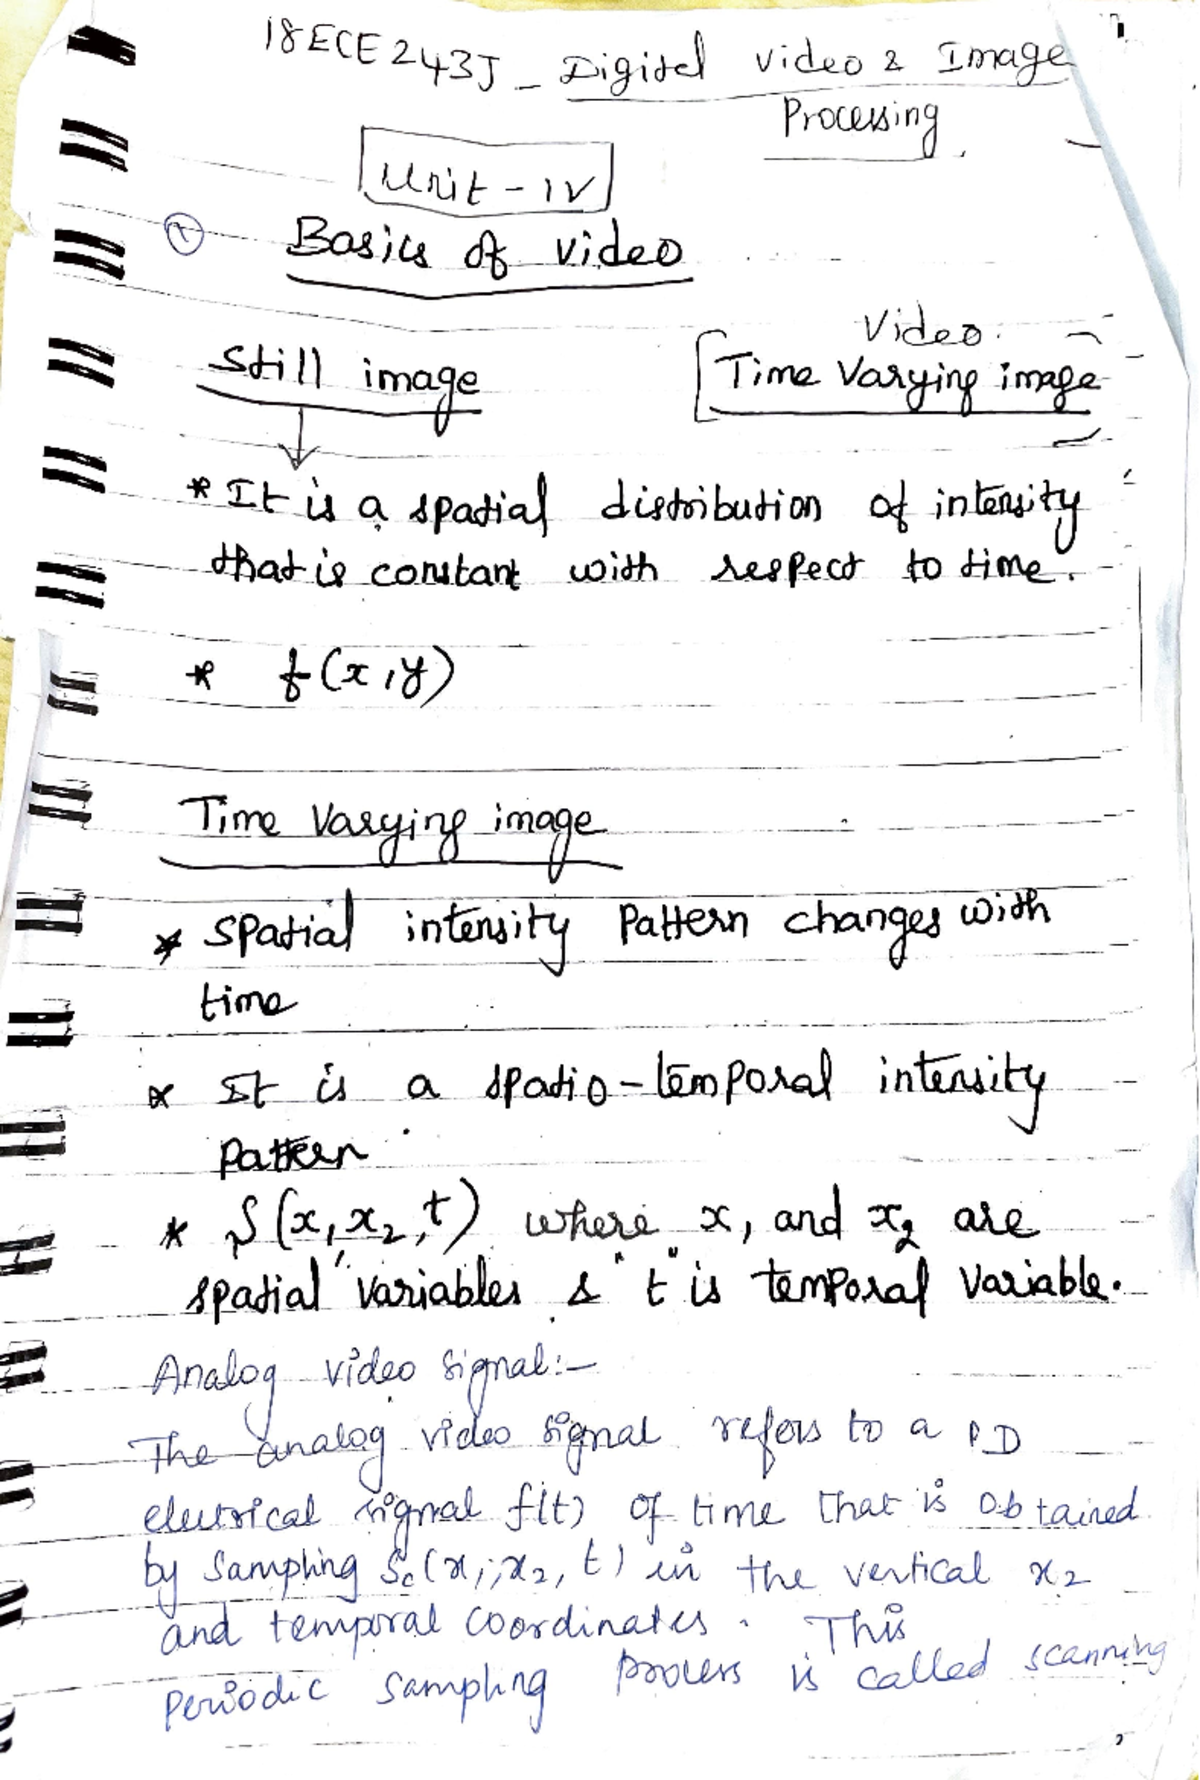 18ECE243J - Digital Video & Image
Processing
Unit - IV
1 Basics of Video
Still image
Video
Time Varying image
* It is a spatial distribution of intensity
that is constant with respect to time.
* f(x,y)
Time Varying image
* Spatial intensity Pattern changes with
time
* It is a spatio-temporal intensity
Pattern
* S(x₁, x₂, t) where x₁ and x₂ are
spatial variables & "t" is temporal variable.
Analog video signal:-
The analog video signal refers to a 1D
electrical signal f(t) of time that is obtained
by sampling Sc(x₁, x₂, t) in the vertical x₂
and temporal coordinates. This
Periodic sampling process is called scanning